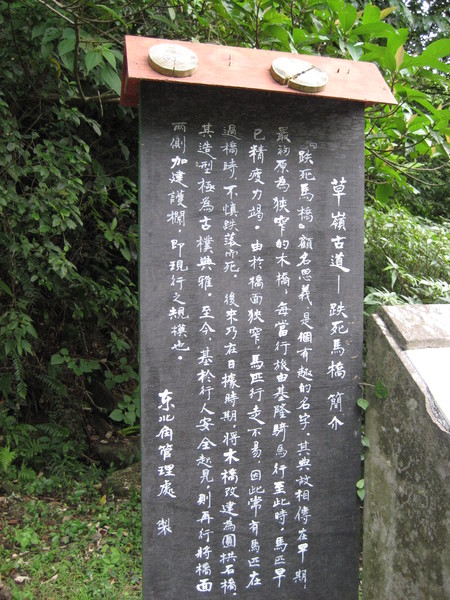 草嶺古道—跌死馬橋 簡介
『跌死馬橋』顧名思義,是個有趣的名字,其典故相傳在早期,
最初原為狹窄的木橋,每當行旅由基隆騎馬行至此時,馬匹早
已精疲力竭。由於橋面狹窄,馬匹行走不易,因此常有馬匹在
過橋時,不慎跌落而死。後來乃在日據時期,將木橋改建為圓拱石橋,
其造型極為古樸典雅。至今,基於行人安全起見,則再行將橋面
兩側加建護欄,即現行之規模也。
东北角管理處 製